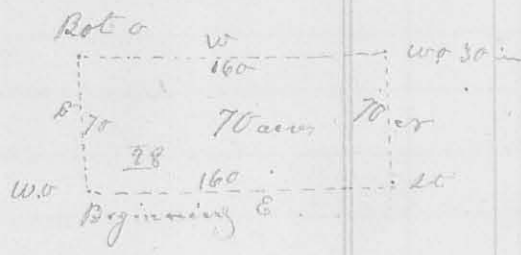 Bot o
W
160 W.o 30 in
70 70 acres 70
28
W.o 160 St
Beginning E